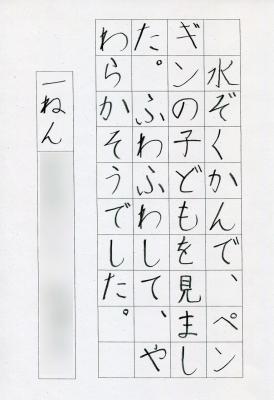 水ぞくかんで、ペン
ギンの子どもを見まし
た。ふわふわして、や
わらかそうでした。
一ねん